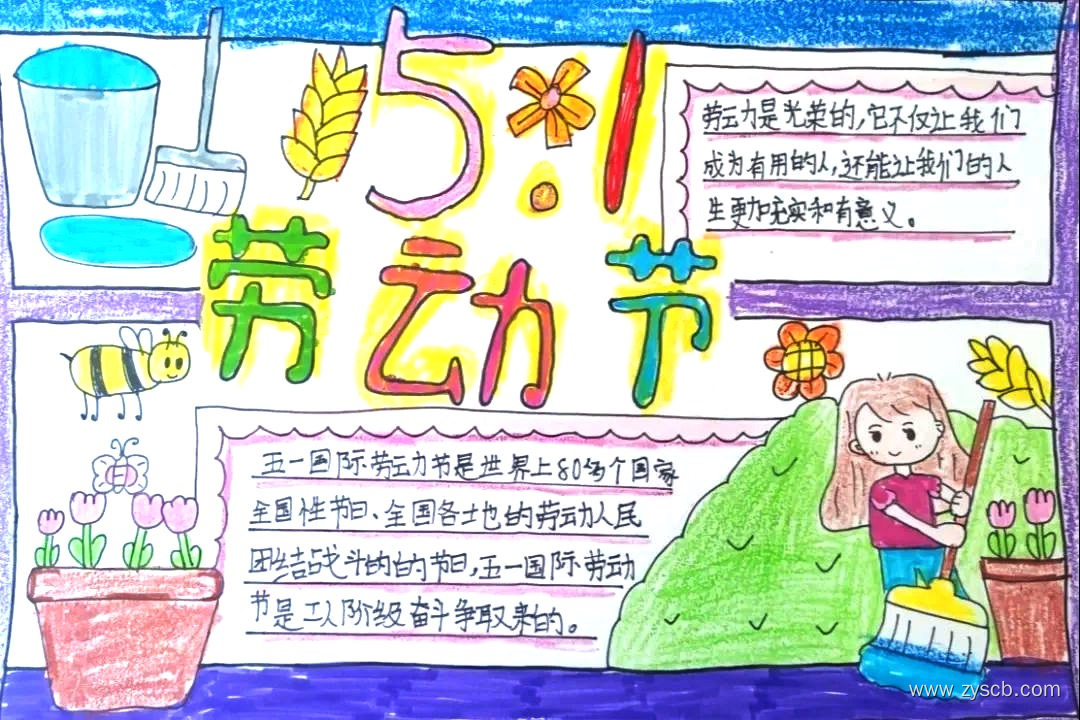 5.1
劳动节
劳动力是光荣的,它不仅让我们
成为有用的人,还能让我们的人
生更加充实和有意义。
五一国际劳动节是世界上80多个国家
全国性节日、全国各土地的劳动人民
团结战斗的的节日,五一国际劳动
节是工人阶级奋斗争取来的。
www.zyscb.com